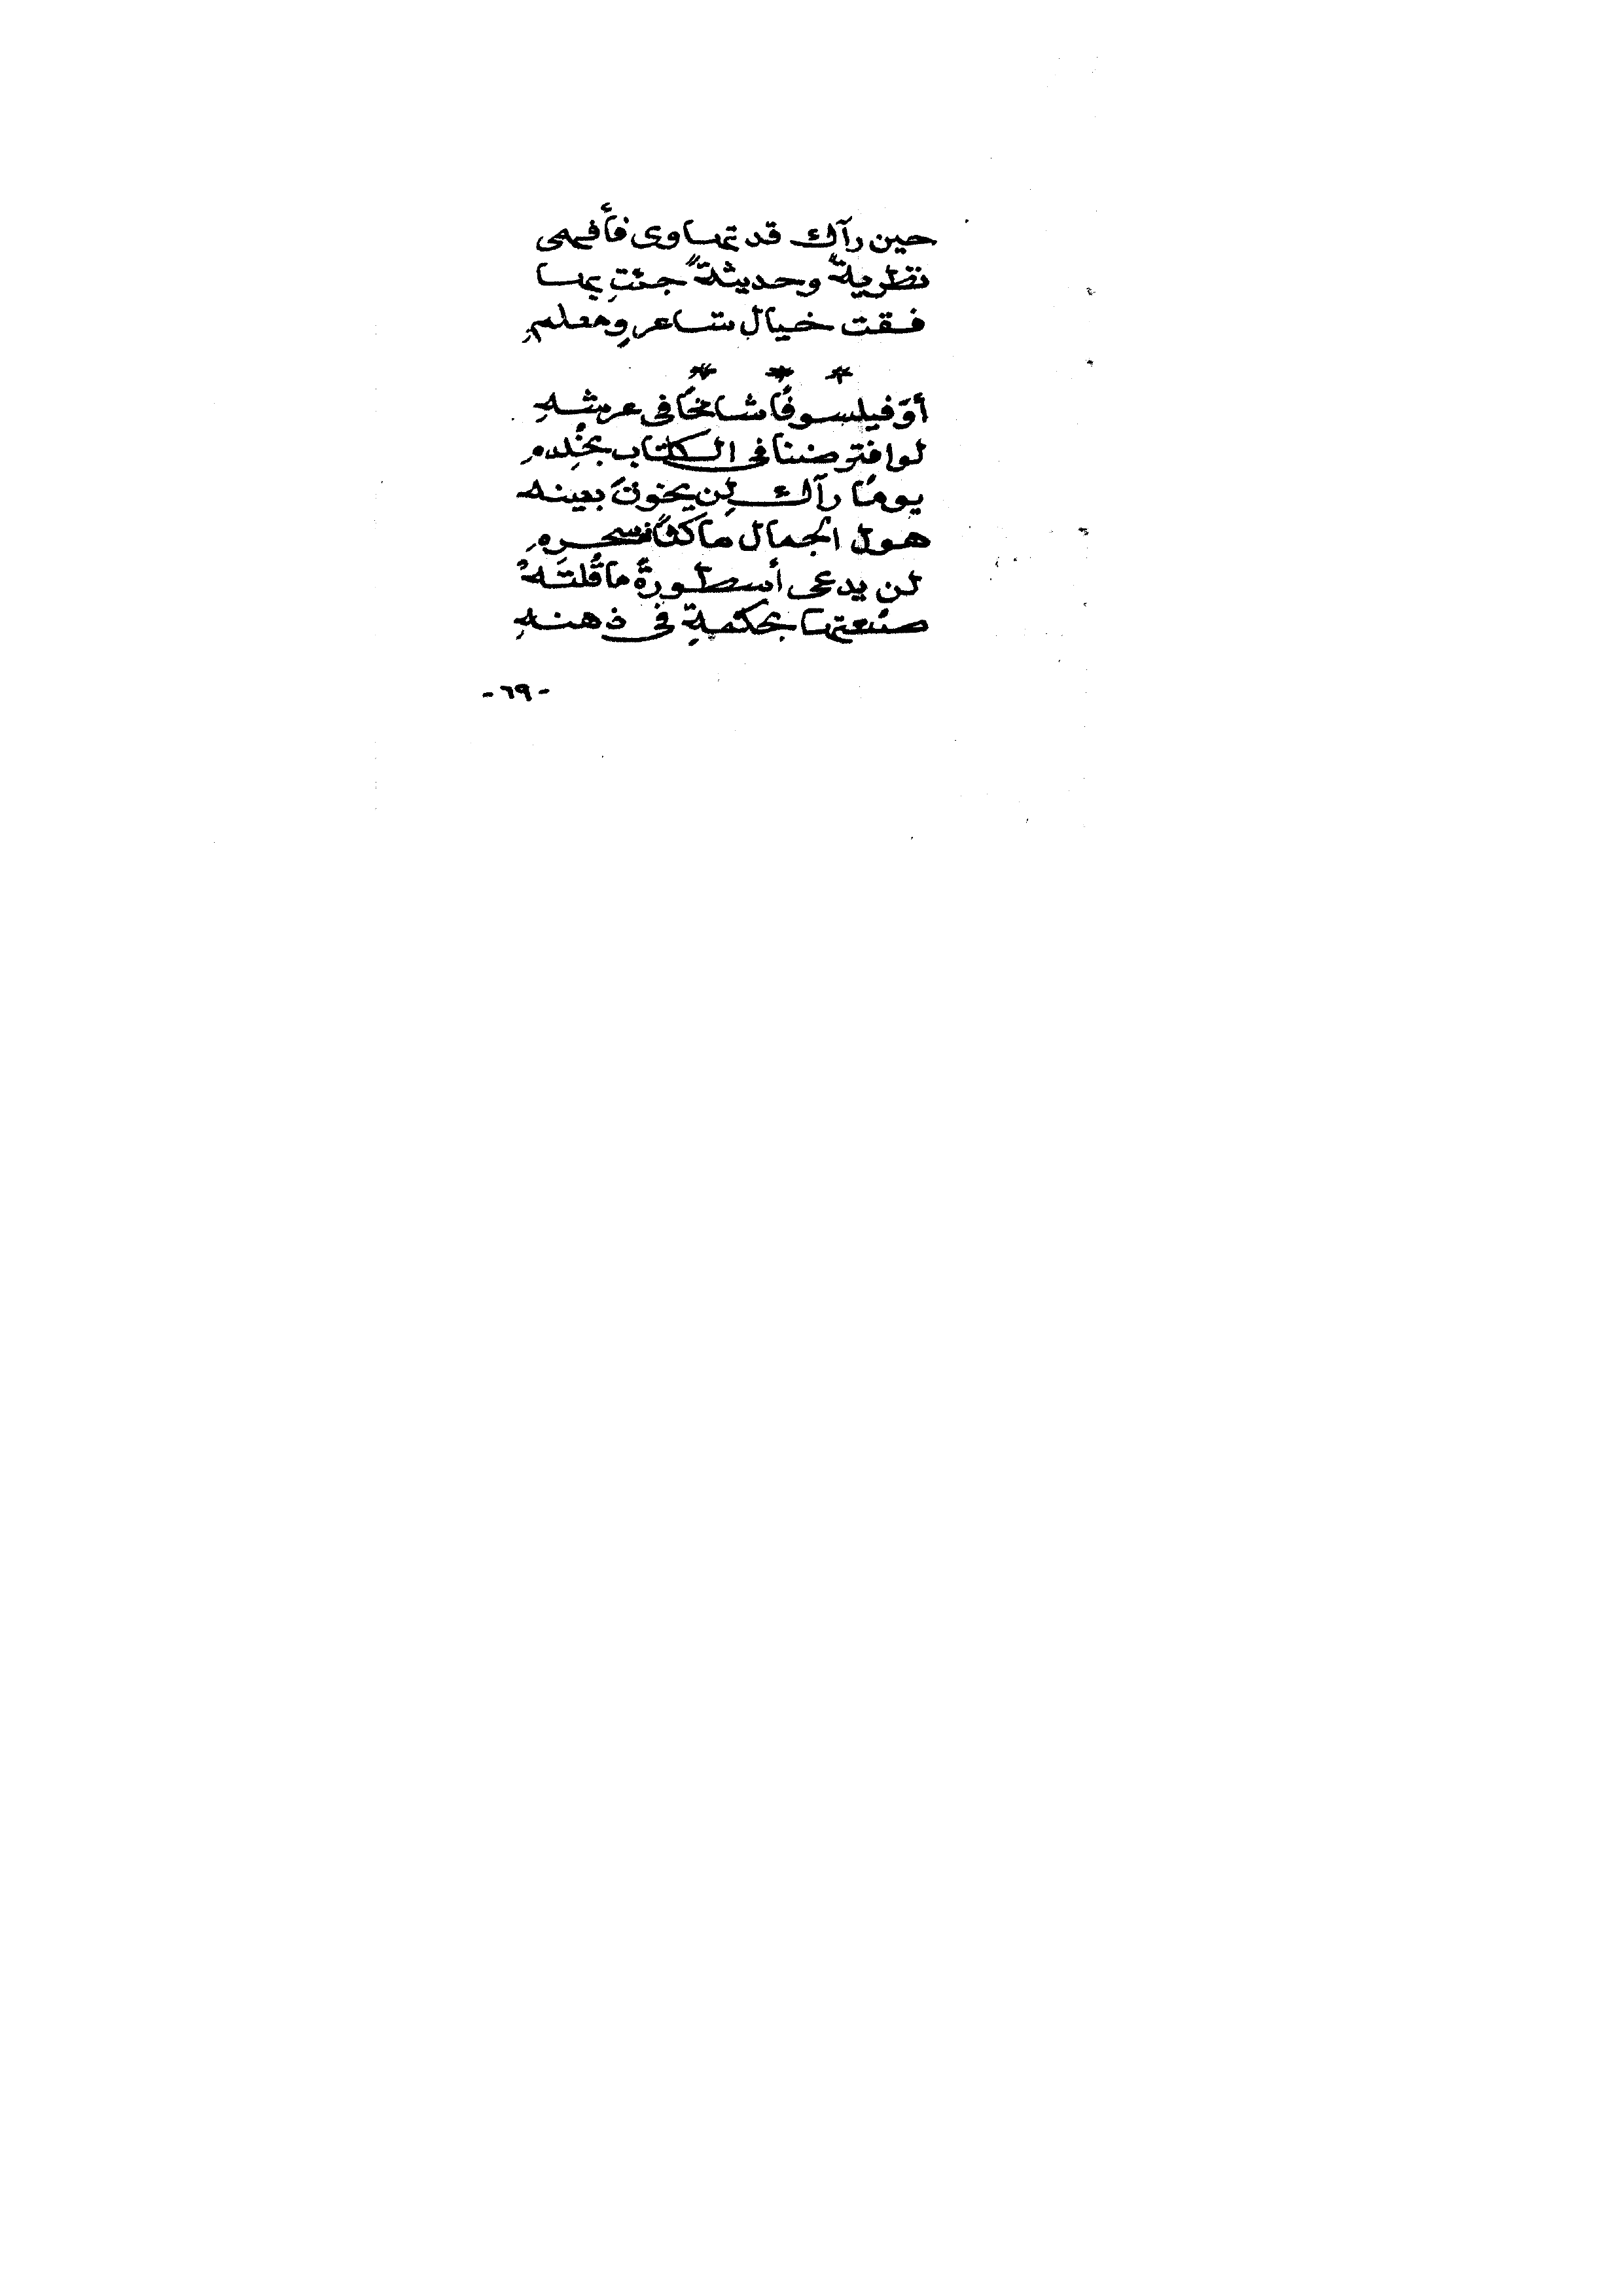 حين رآك قد تهاوى فأفهمى
نظريةً وحديثةً جئتِ بها
فقت خيال شاعرٍ ومعلمِ
* * *
أوَ فيلسوفًا شامخًا فى عرشهِ
لو افترضنا فى الكتاب بخُلدهِ
يومًا رآك لن يخونَ بعينه
هول الجمال ماكثًا بسحرهِ
لن يدعى أسطورةً ما قُلتَهُ
صنعتها بحكمةٍ فى ذهنهِ
-٦٩-